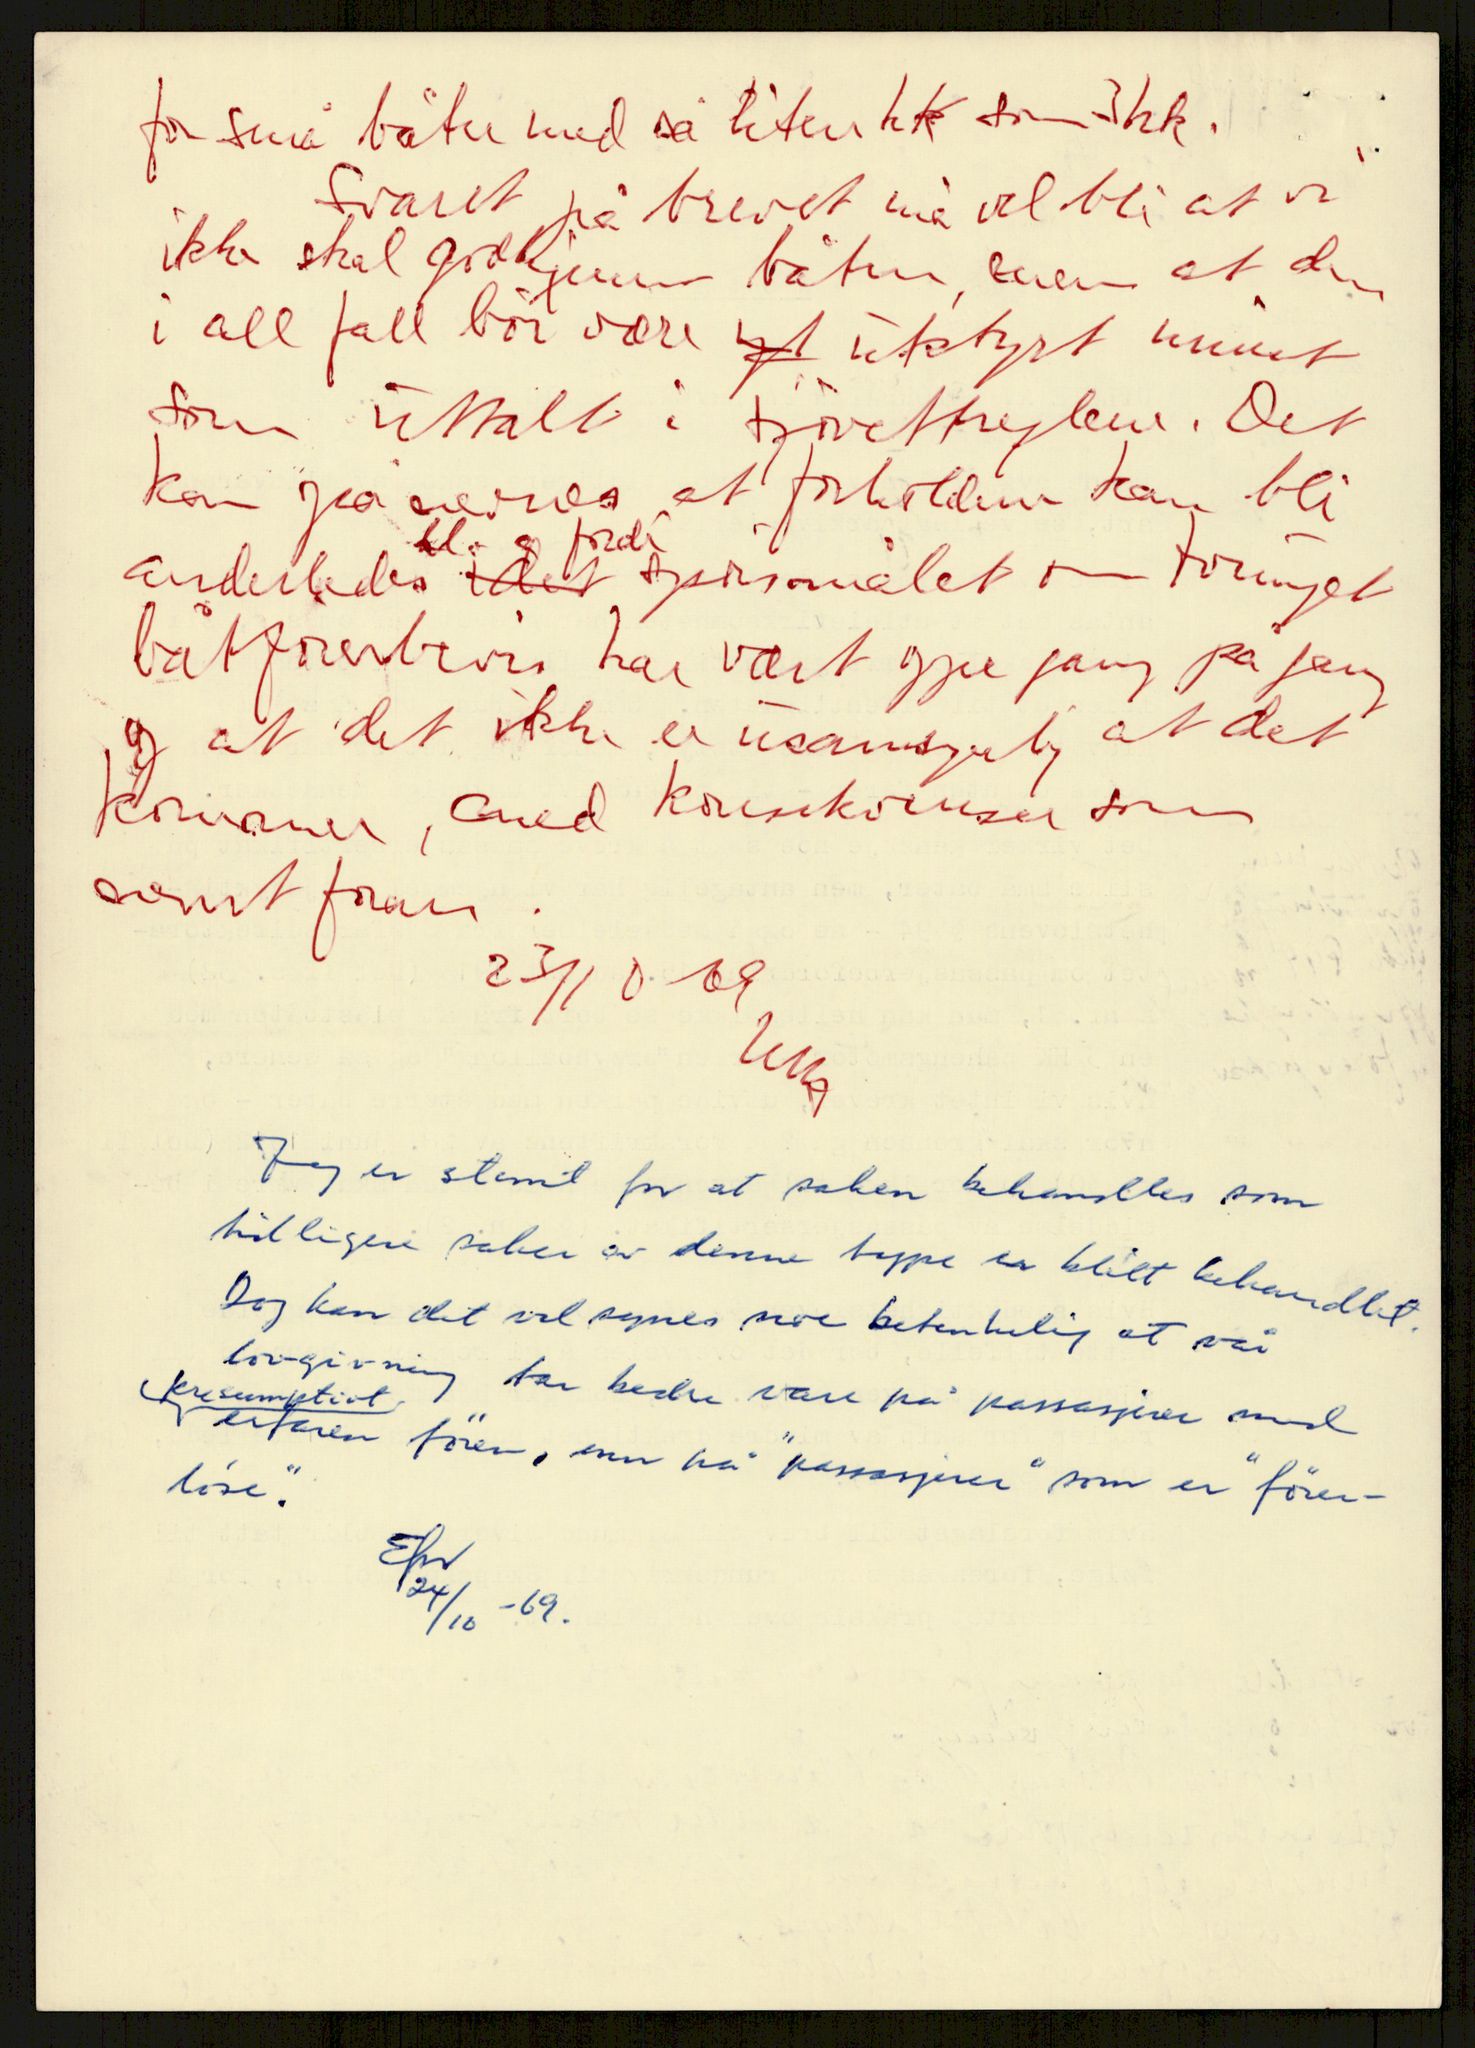 for små båter med så liten hk som 3 hk.
Svaret på brevet må vel bli at vi
ikke skal godkjenne båten, men at den
i all fall bör være utstyrt minst
som uttalt i sjövettreglene. Det
kan også nevnes at forholdene kan bli
bl. a. fordi
anderledes det spörsmålet om tvunget
båtförerbevis har vært oppe gang på gang
og at det ikke er usannsynlig at det
kommer, med konsekvenser som
nevnt foran.
23/10-69
Jeg er stemt for at saken behandles som
tidligere saker av denne type er blitt behandlet.
Dog kan det vel synes noe betenkelig at vår
lovgivning tar bedre vare på passasjerer med
presumptivt
erfaren förer, enn på "passasjerer" som er "förer-
löse".
24/10-69.